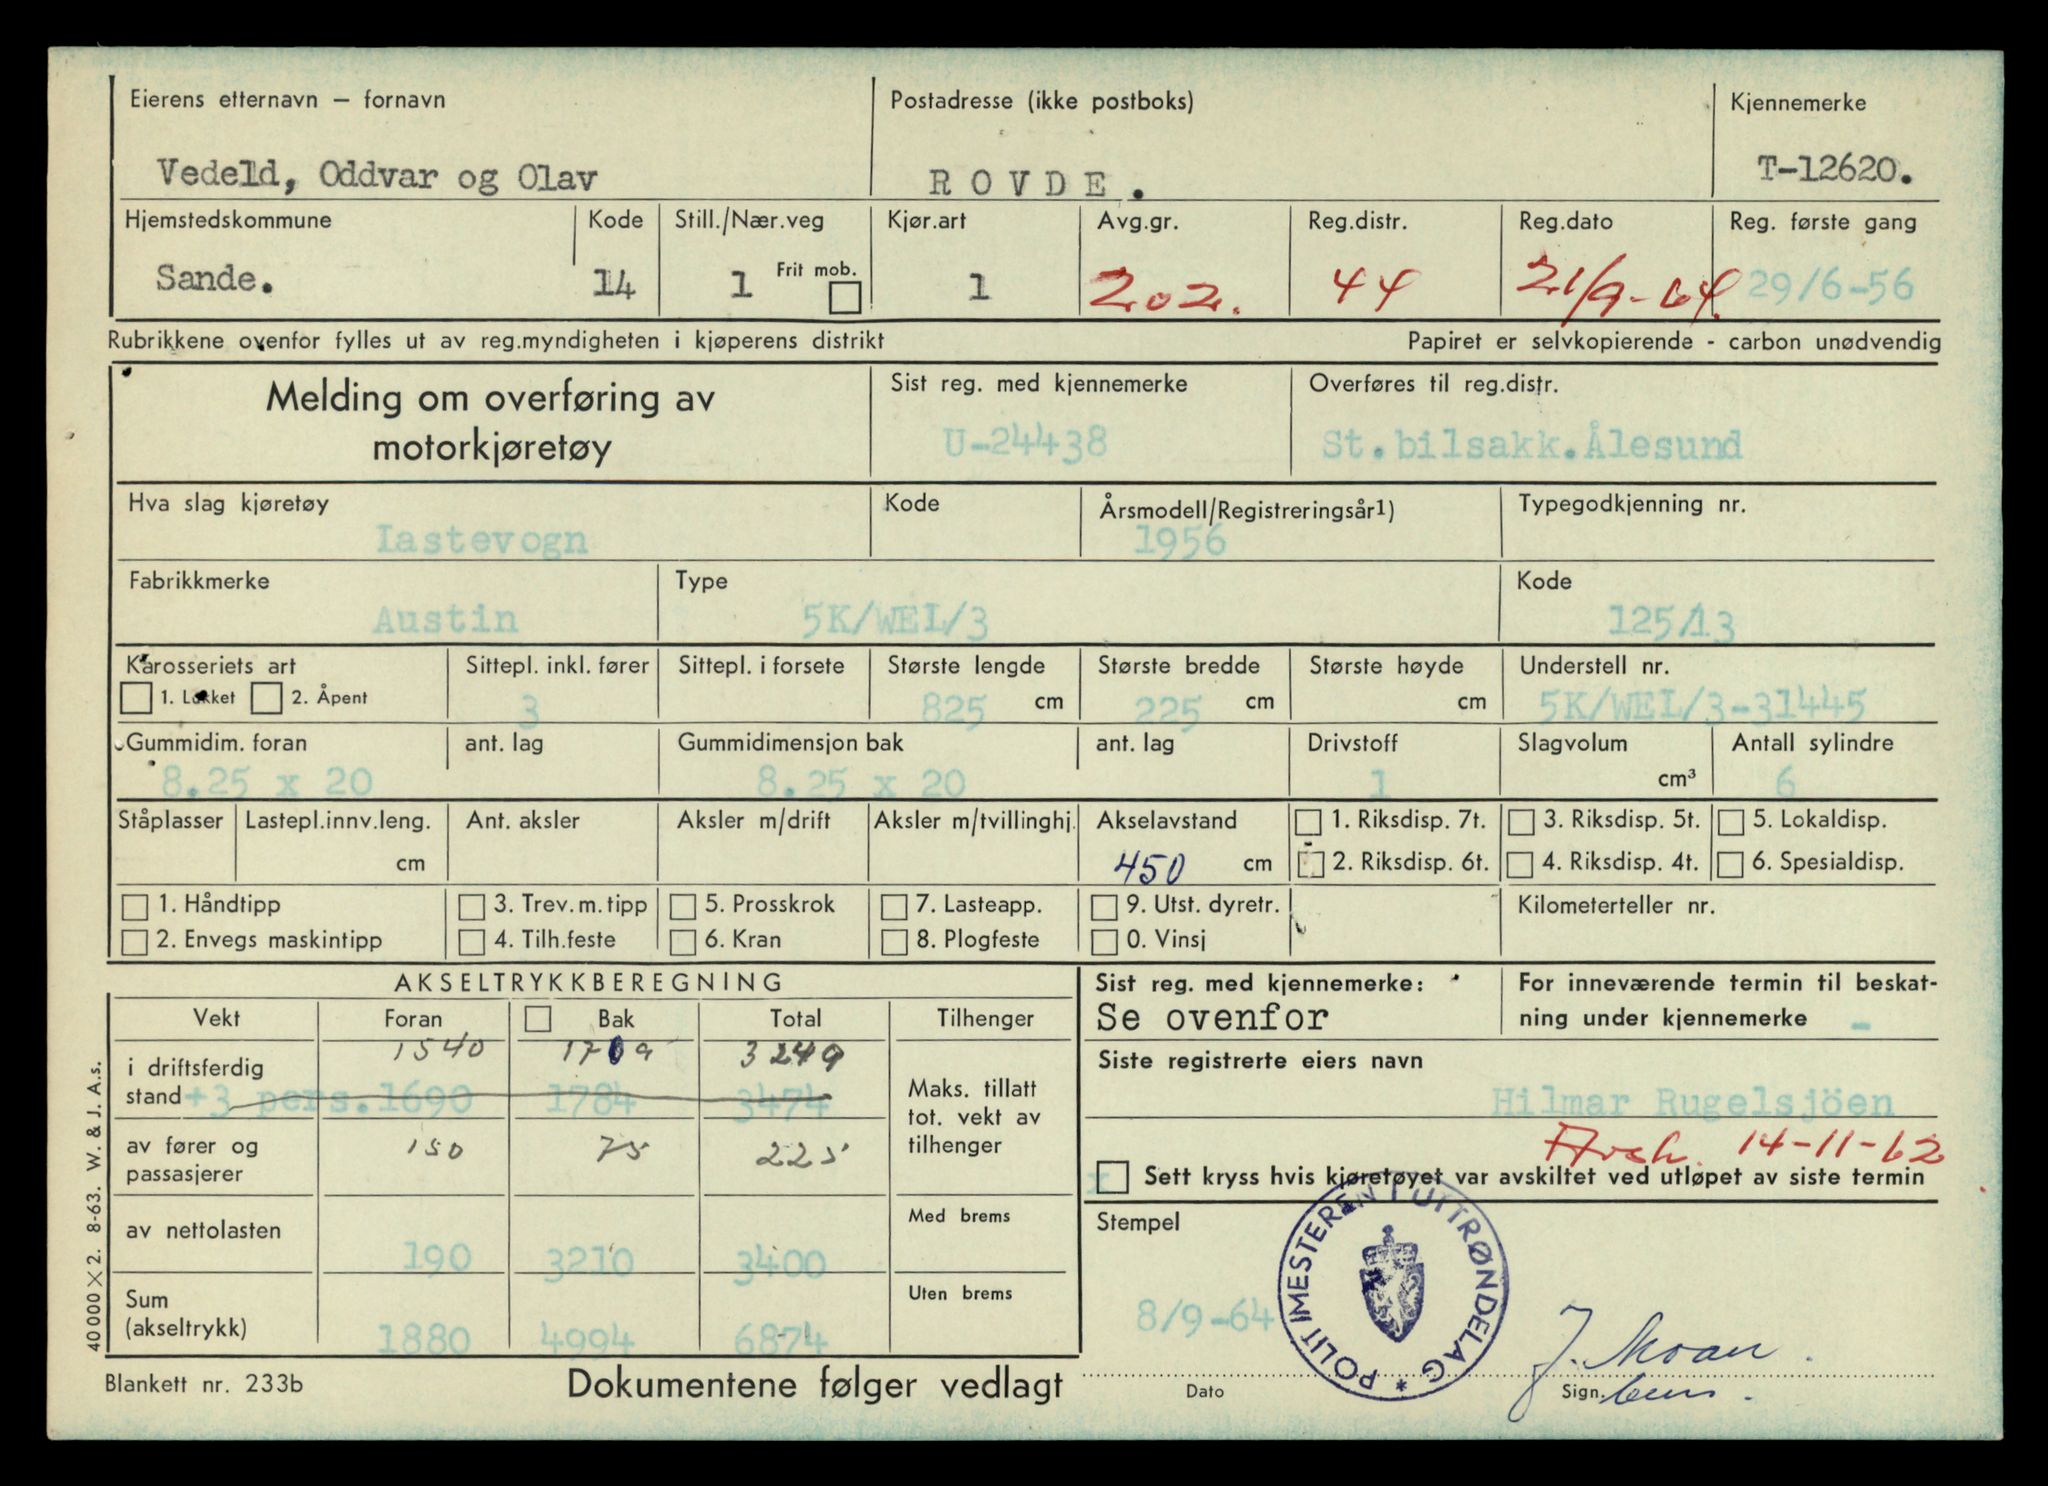 Eierens etternavn – fornavn
Postadresse (ikke postboks)
Kjennemerke
Vedeld, Oddvar og Olav
ROVDE.
T-12620.
Hjemstedskommune
Kode
Still./Nær.veg
Kjør.art
Avg.gr.
Reg.distr.
Reg.dato
Reg. første gang
Sande.
14
1
Frit mob.
1
202.
44
21/9-64.
29/6-56
Rubrikkene ovenfor fylles ut av reg.myndigheten i kjøperens distrikt
Papiret er selvkopierende - carbon unødvendig
Melding om overføring av
motorkjøretøy
Sist reg. med kjennemerke
Overføres til reg.distr.
U-24438
St.bilsakk.Ålesund
Hva slag kjøretøy
Kode
Årsmodell/Registreringsår1)
Typegodkjenning nr.
Lastevogn
1956
Fabrikkmerke
Type
Kode
Austin
5K/WEL/3
125/13
Karosseriets art
Sittepl. inkl. fører
Sittepl. i forsete
Største lengde
Største bredde
Største høyde
Understell nr.
1. Lukket
2. Åpent
3
825 cm
225 cm
cm
5K/WEL/3-31445
Gummidim. foran
ant. lag
Gummidimensjon bak
ant. lag
Drivstoff
Slagvolum
Antall sylindre
8.25 x 20
8.25 x 20
1
cm³
6
Ståplasser
Lastepl.innv.leng.
Ant. aksler
Aksler m/drift
Aksler m/tvillinghj.
Akselavstand
1. Riksdisp. 7t.
3. Riksdisp. 5t.
5. Lokaldisp.
cm
450 cm
2. Riksdisp. 6t.
4. Riksdisp. 4t.
6. Spesialdisp.
1. Håndtipp
3. Trev. m. tipp
5. Prosskrok
7. Lasteapp.
9. Utst. dyretr.
Kilometerteller nr.
2. Envegs maskintipp
4. Tilh.feste
6. Kran
8. Plogfeste
0. Vinsj
AKSELTRYKKBEREGNING
Sist reg. med kjennemerke:
For inneværende termin til beskat-
Vekt
Foran
Bak
Total
Tilhenger
Se ovenfor
ning under kjennemerke -
1540
1709
3249
i driftsferdig
stand
+3 pers. 1690
1784
3474
Maks. tillatt
tot. vekt av
tilhenger
Siste registrerte eiers navn
Hilmar Rugelsjöen
av fører og
passasjerer
150
75
225
Avsk. 14-11-62
Sett kryss hvis kjøretøyet var avskiltet ved utløpet av siste termin
av nettolasten
190
3210
3400
Med brems
Stempel
Sum
(akseltrykk)
1880
4994
6874
Uten brems
8/9-64
POLITIMESTEREN I UTTRØNDELAG *
J. Moan
Dato
Sign.
Blankett nr. 233b
Dokumentene følger vedlagt
40000 X 2. 8-63. W. & J. A.s.